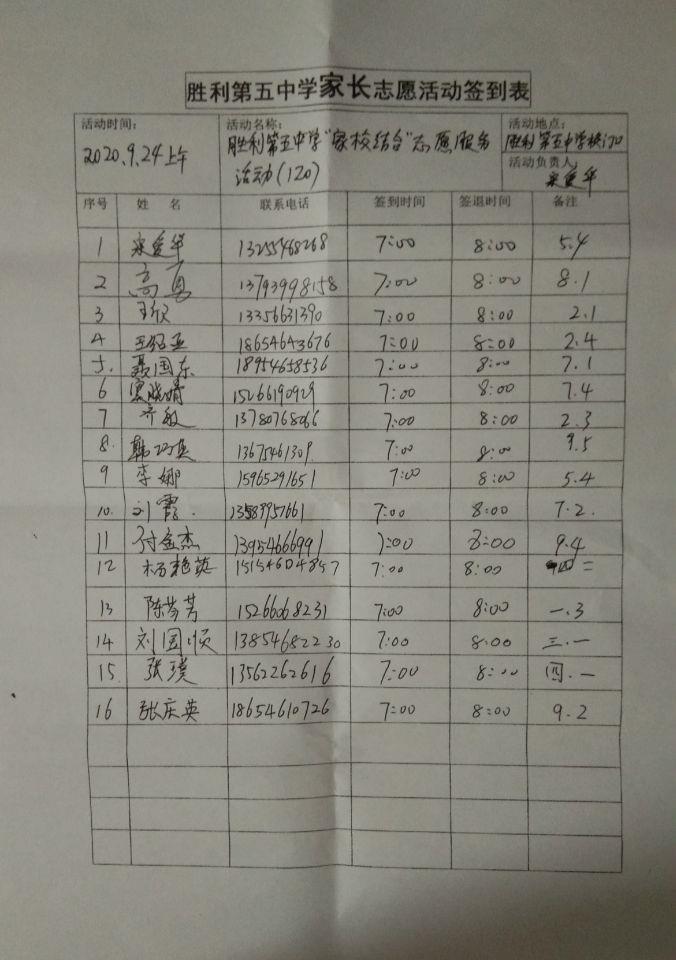 胜利第五中学家长志愿活动签到表
活动时间: 活动名称: 活动地点:
2020.9.24上午 胜利第五中学"家校结合"志愿服务 胜利第五中学校门口
活动(120) 活动负责人: 宋爱华
序号 姓 名 联系电话 签到时间 签退时间 备注
1 宋爱华 13255468268 7:00 8:00 5.4
2 高勇 13793998158 7:00 8:00 8.1
3 王欣 13356631390 7:00 8:00 2.1
4 王绍亚 18654643676 7:00 8:00 2.4
5. 聂国东 18954658536 7:00 8:00 7.1
6 晓婧 15266190929 7:00 8:00 7.4
7 齐敏 13780768066 7:00 8:00 2.3
8. 韩巧英 13675461309 7:00 8:00 9.5
9 李娜 15965291651 7:00 8:00 5.4
10. 刘霞. 13583957661 7:00 8:00 7.2.
11 付金杰 13954666991 7:00 8:00 9.4
12 杨艳英 15154604857 7:00 8:00 四二
13 陈芬芳 15266068231 7:00 8:00 一.3
14 刘国顺 13854682230 7:00 8.00 三.一
15. 张璞 13562262616 7:00 8:00 四.一
16 张庆英 18654610726 7:00 8:00 9.2